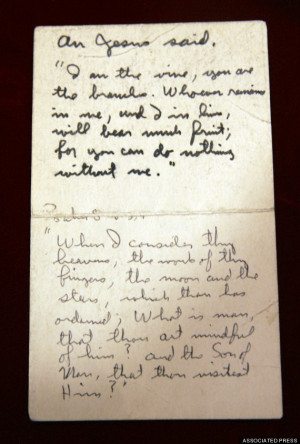 As Jesus said,
"I am the vine, you are
the branches. Whoever remains
in me, and I in him,
will bear much fruit;
for you can do nothing
without me."
Psalms
"When I consider thy
heavens, the work of thy
fingers, the moon and the
stars, which thou has
ordained; What is man,
that thou art mindful
of him? and the Son of
Man, that thou visitest
Him?"
ASSOCIATED PRESS